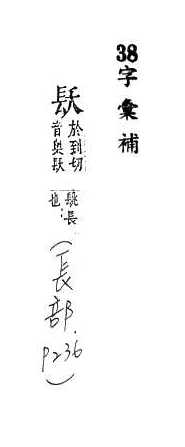 38字彙補
镺
於到切
音奧镺
長
也
(長部. P236)